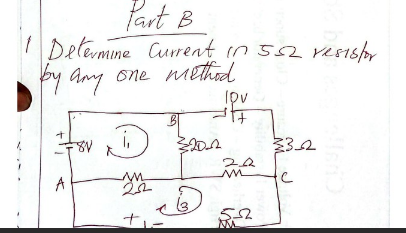 Part B
1 Determine Current in 5Ω resistor
by any one method
10V
+
B
+
8V
i1
20Ω
3Ω
-
2Ω
A
2Ω
C
i3
+
-
5Ω